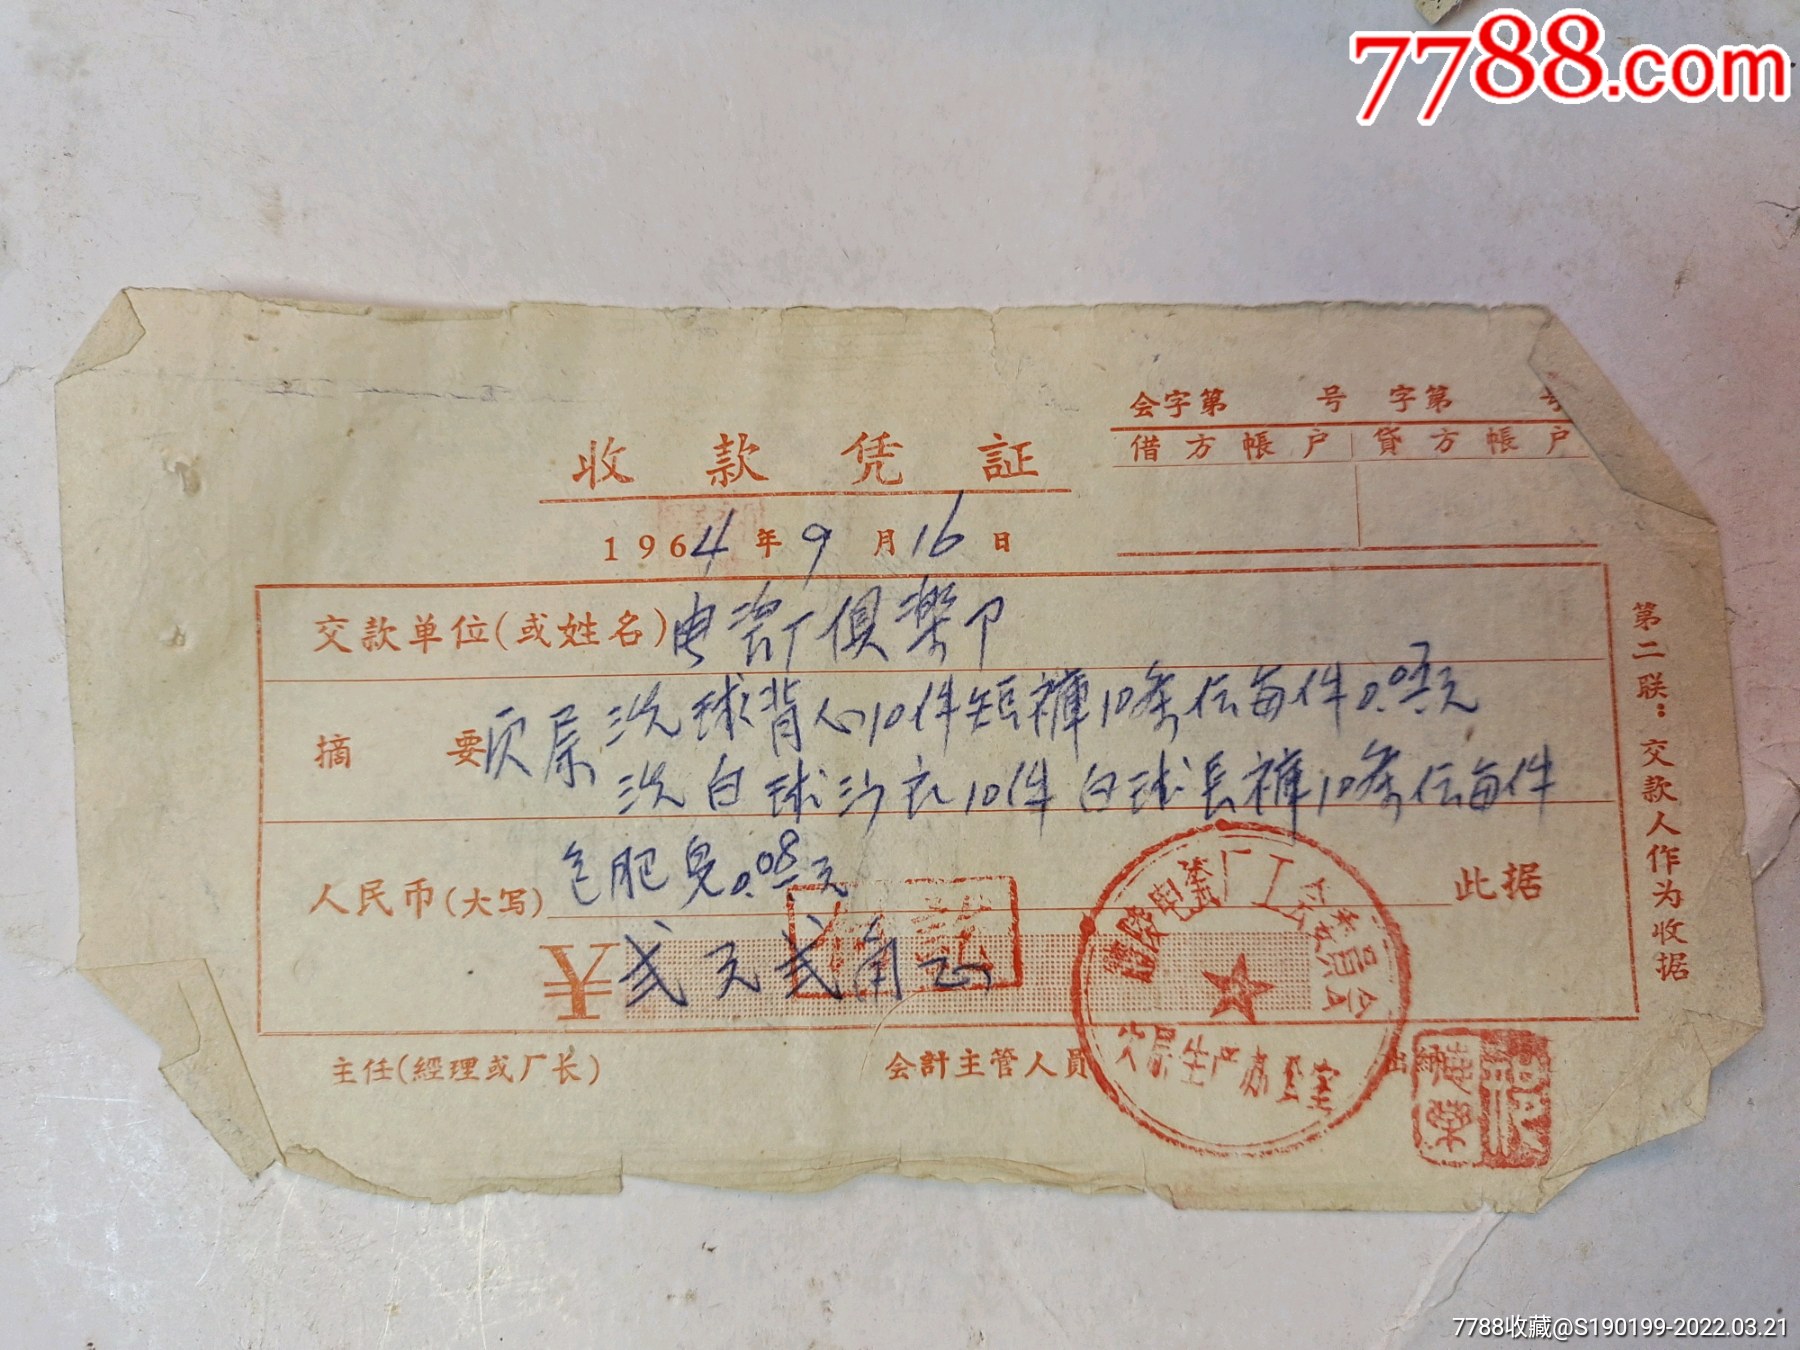 7788.com
会字第 号 字第 号
借方帳户 貸方帳户
收款凭証
1964年9月16日
交款单位(或姓名)电瓷厂俱楽卩
摘要 洗球背心10件短裤10条伝每件0.03元
洗白球沙衣10件白球長裤10条伝每件
包肥皂0.08元
人民币(大写) 此据
¥弍元弍角正
主任(經理或厂长) 会計主管人員 出納
第二联：交款人作为收据
醴陵电瓷厂工会委員会
家属生产办公室
7788收藏@S190199-2022.03.21